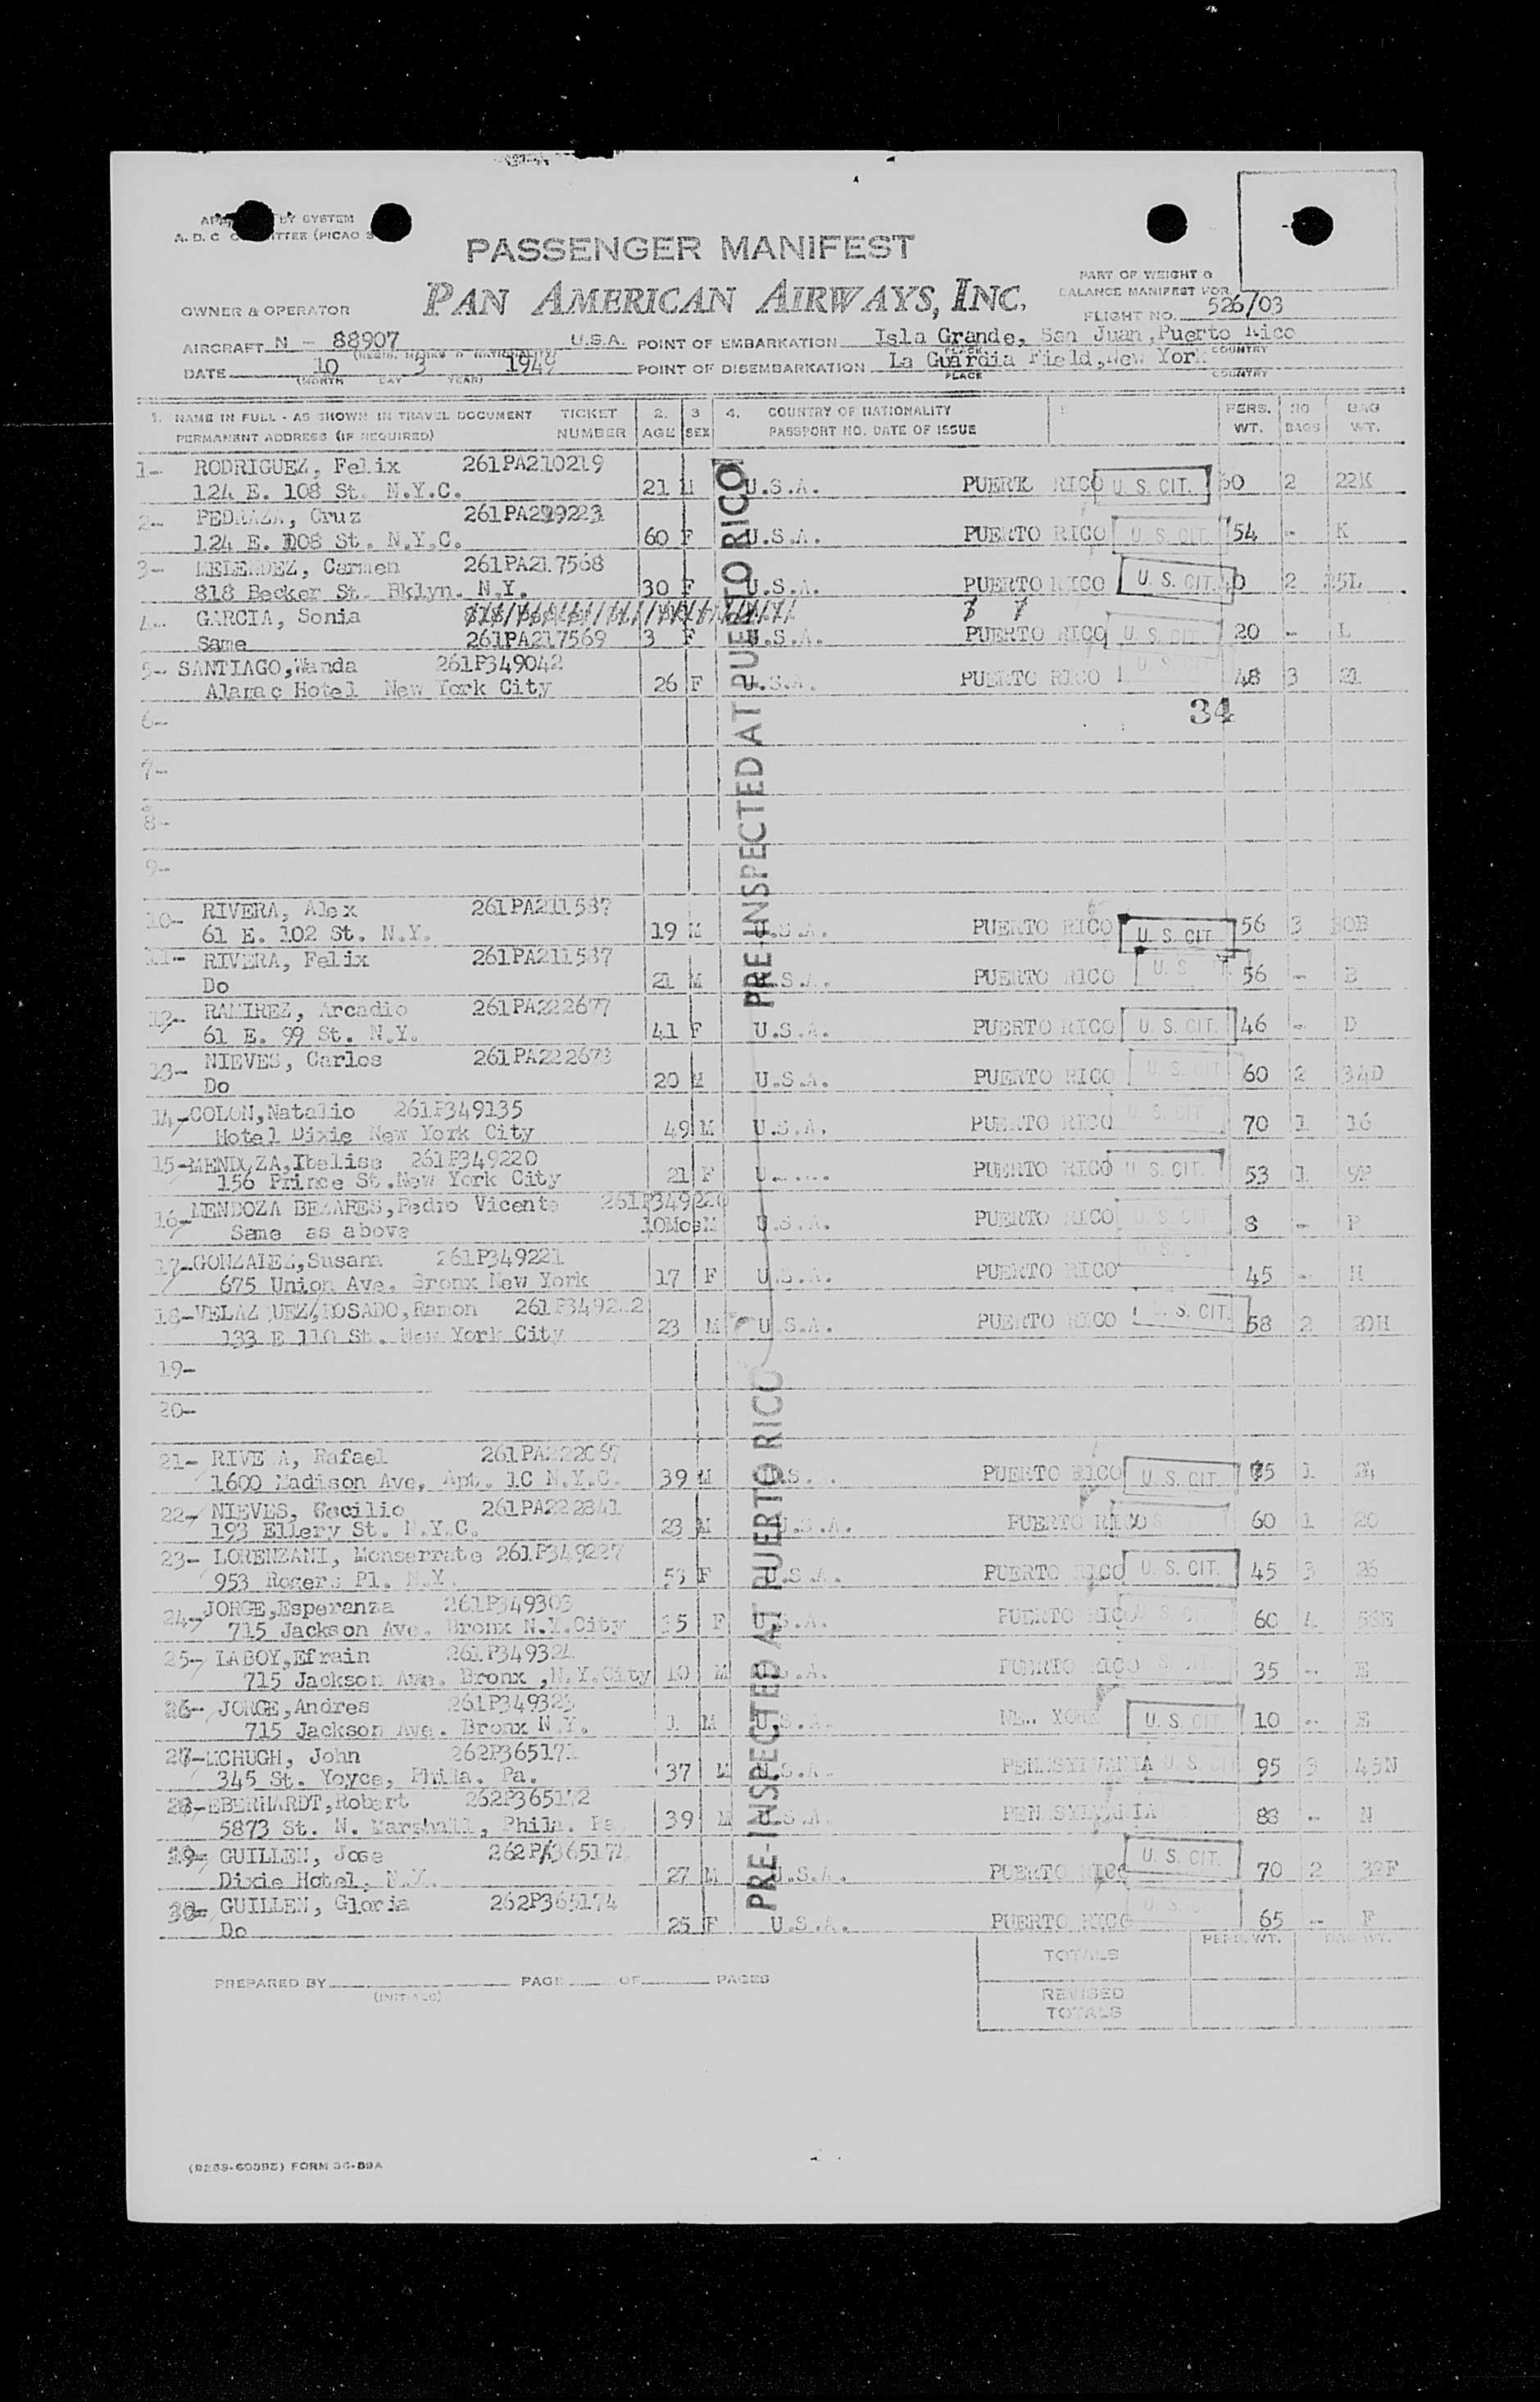 BY SYSTEM
A. D. C (PICAO
PASSENGER MANIFEST
PAN AMERICAN AIRWAYS, INC.
PART OF WEIGHT &
BALANCE MANIFEST FOR
FLIGHT NO. 526/03
OWNER & OPERATOR
AIRCRAFT N - 88907 U.S.A. POINT OF EMBARKATION Isla Grande, San Juan, Puerto Rico
(REGIS. MARKS & NATIONALITY) PLACE COUNTRY
DATE 10 3 1949 POINT OF DISEMBARKATION La Guardia Field, New York
(MONTH DAY YEAR) PLACE COUNTRY
1. NAME IN FULL - AS SHOWN IN TRAVEL DOCUMENT TICKET 2. 3 4. COUNTRY OF NATIONALITY PERS. NO BAG
PERMANENT ADDRESS (IF REQUIRED) NUMBER AGE SEX PASSPORT NO. DATE OF ISSUE WT. BAGS WT.
PRE-INSPECTED AT PUERTO RICO
1- RODRIGUEZ, Felix 261PA210219
124 E. 108 St. N.Y.C. 21 M U.S.A. PUERK RICO U. S. CIT. 2 22K
2- PEDRAZA, Cruz
124 E. 108 St. N.Y.C. 60 F U.S.A. PUERTO RICO U. S. CIT. 54 - K
3- MELENDEZ, Carmen 261PA217568
818 Becker St. Bklyn. N.Y. 30 F U.S.A. PUERTO RICO U. S. CIT. 2 L
4- GARCIA, Sonia
Same 261PA217569 3 F U.S.A. PUERTO RICO U. S. CIT. 20 - L
5- SANTIAGO,Wanda 261P349042
Alamac Hotel New York City 26 F U.S.A. PUERTO RICO 48 3 21
6- 34
7-
8-
9-
10- RIVERA, Alex 261PA211587
61 E. 102 St. N.Y. 19 M U.S.A. PUERTO RICO U. S. CIT 56 3 30B
11- RIVERA, Felix 261PA211587
Do 21 M U.S.A. PUERTO RICO U. S. 56 - B
12- RAMIREZ, Arcadio 261PA222677
61 E. 99 St. N.Y. 41 F U.S.A. PUERTO RICO U. S. CIT. 46 - D
13- NIEVES, Carlos 261PA222678
Do 20 M U.S.A. PUERTO RICO U. S. CIT 60 2 34D
14- COLON,Natalio 261P349135
Hotel Dixie New York City 49 M U.S.A. PUERTO RICO U. S. CIT 70 1 16
15- MENDOZA,Ibelise 261P349220
156 Prince St.New York City 21 F U.... PUERTO RICO U. S. CIT. 53 1 9P
16- MENDOZA BEZARES,Pedro Vicente 261P349220
Same as above 10Mos M U.S.A. PUERTO RICO U. S. CIT. 8 - P
17- GONZALEZ,Susana 261P349221
675 Union Ave. Bronx New York 17 F U.S.A. PUERTO RICO 45 - H
18- ROSADO,Ramon
133 E 110 St. New York City 23 M U.S.A. PUERTO RICO U. S. CIT. 58 2 30H
19-
20-
PRE-INSPECTED AT PUERTO RICO
21- RIVE A, Rafael
1600 Madison Ave, Apt. 1C N.Y.C. 39 M U.S. PUERTO RICO U. S. CIT. 75 1 24
22- NIEVES, Cecilio 261PA222841
193 Ellery St. N.Y.C. 23 M U.S.A. PUERTO RICO 60 1 20
23- LORENZANI, Monserrate 261P349227
953 Rogers Pl. N.Y. 53 F U.S.A. PUERTO RICO U. S. CIT. 45 3 26
24- JORGE,Esperanza 261P349303
715 Jackson Ave. Bronx N.Y.City F U.S.A. PUERTO RICO 60 4
25- LABOY,Efrain 261P349324
715 Jackson Ave. Bronx ,N.Y.City 10 M U.S.A. PUERTO RICO 35 - E
26- JORGE,Andres 261P349323
715 Jackson Ave. Bronx N.Y. 1 M U.S.A. YORK U. S. CIT 10 - E
27- MCHUGH, John
345 St. Yoyce, Phila. Pa. 37 M U.S.A. PENNSYLVANIA 95 3 45N
28- EBERHARDT,Robert 262P365172
5873 St. N. Marshall, Phila. Pa 39 M U.S.A. PENNSYLVANIA 88 - N
29- GUILLEN, Jose
Dixie Hotel, N.Y. 27 M U.S.A. PUERTO RICO U. S. CIT. 70 2 32F
30- GUILLEN, Gloria 262P365174
Do 25 F U.S.A. PUERTO RICO 65 - F
PREPARED BY PAGE OF PAGES
(INITIALS)
TOTALS PERS. WT. BAG WT.
REVISED
TOTALS
FORM 36-89A